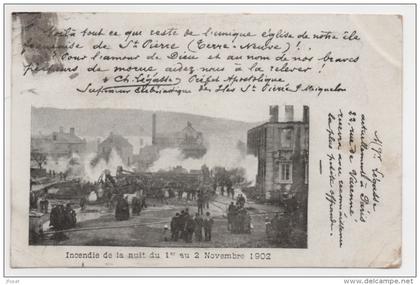 Voilà tout ce que reste de l'unique église de notre île
française de St Pierre (Terre-Neuve) !..
Pour l'amour de Dieu et au nom de nos braves
pêcheurs de morue aidez nous à la relever !
+ Ch. Légasse, Préfet Apostolique
Supérieur Ecclésiastique des Iles St Pierre & Miquelon
Mgr Légasse,
actuellement à Paris
22, rue de Varenne
recevra avec reconnaissance
la plus petite offrande.
Incendie de la nuit du 1er au 2 Novembre 1902
www.delcampe.net